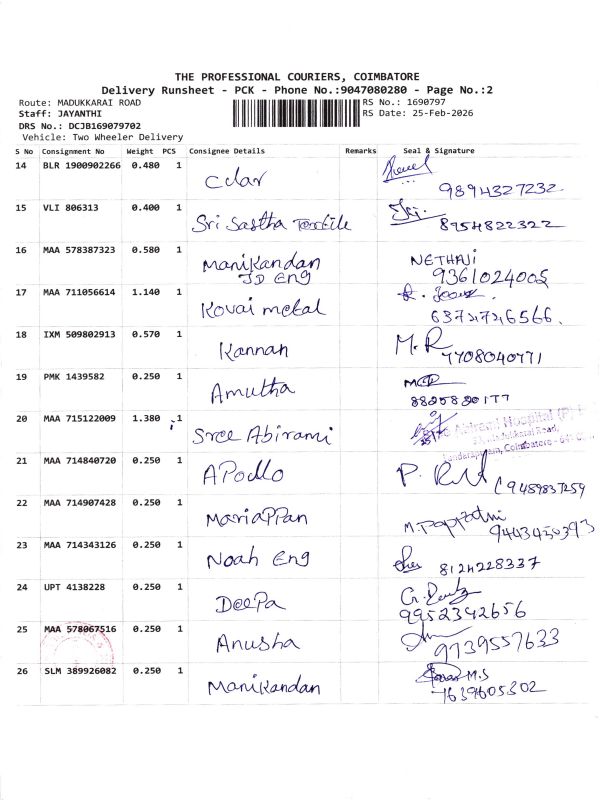 THE PROFESSIONAL COURIERS, COIMBATORE
Delivery Runsheet - PCK - Phone No.:9047080280 - Page No.:2
Route: MADUKKARAI ROAD
Staff: JAYANTHI
DRS No.: DCJB169079702
Vehicle: Two Wheeler Delivery
RS No.: 1690797
RS Date: 25-Feb-2026
S No Consignment No Weight PCS Consignee Details Remarks Seal & Signature
14 BLR 1900902266 0.480 1
9894327232
15 VLI 806313 0.400 1 Sri Sastha Textile
8754822322
16 MAA 578387323 0.580 1 Manikandan NETHAJI
JD Eng 9361024005
17 MAA 711056614 1.140 1 Kovai metal
18 IXM 509802913 0.570 1 Kannan M.R
7708040771
19 PMK 1439582 0.250 1 Amutha
8825820177
20 MAA 715122009 1.380 1 Sree Abirami
Abirami Hospital (P)
Madukkarai Road,
Sundarapuram, Coimbatore
21 MAA 714840720 0.250 1 APollo
9459837259
22 MAA 714907428 0.250 1 MariaPPan
9443450393
23 MAA 714343126 0.250 1 Noah Eng
8124228337
24 UPT 4138228 0.250 1 DeePa
9952342656
25 MAA 578067516 0.250 1 Anusha
9739557633
26 SLM 389926082 0.250 1 Manikandan M.S
7639605302